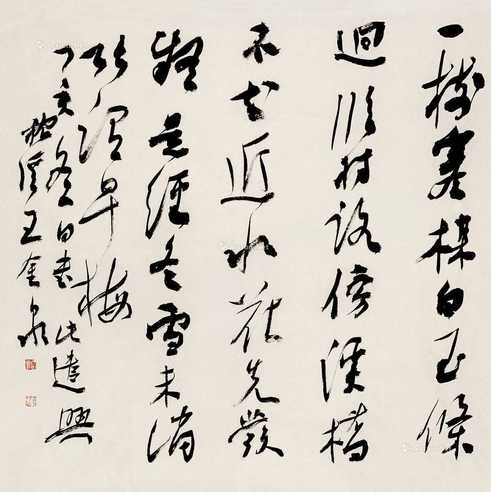 一樹寒楳白玉條
迥臨村路傍溪橋
不知近水花先發
疑是經冬雪未消
張謂早梅
丁亥冬日書此遣興
溪王奎泉